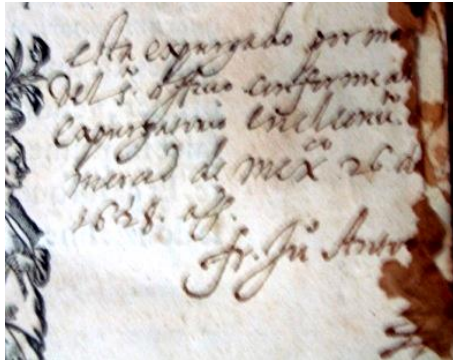 esta expurgado por ma
del s.to officio conforme al
expurgatorio en el conu.to
merced de mex.co 26 de
1628.
fr. Ju.o Anto